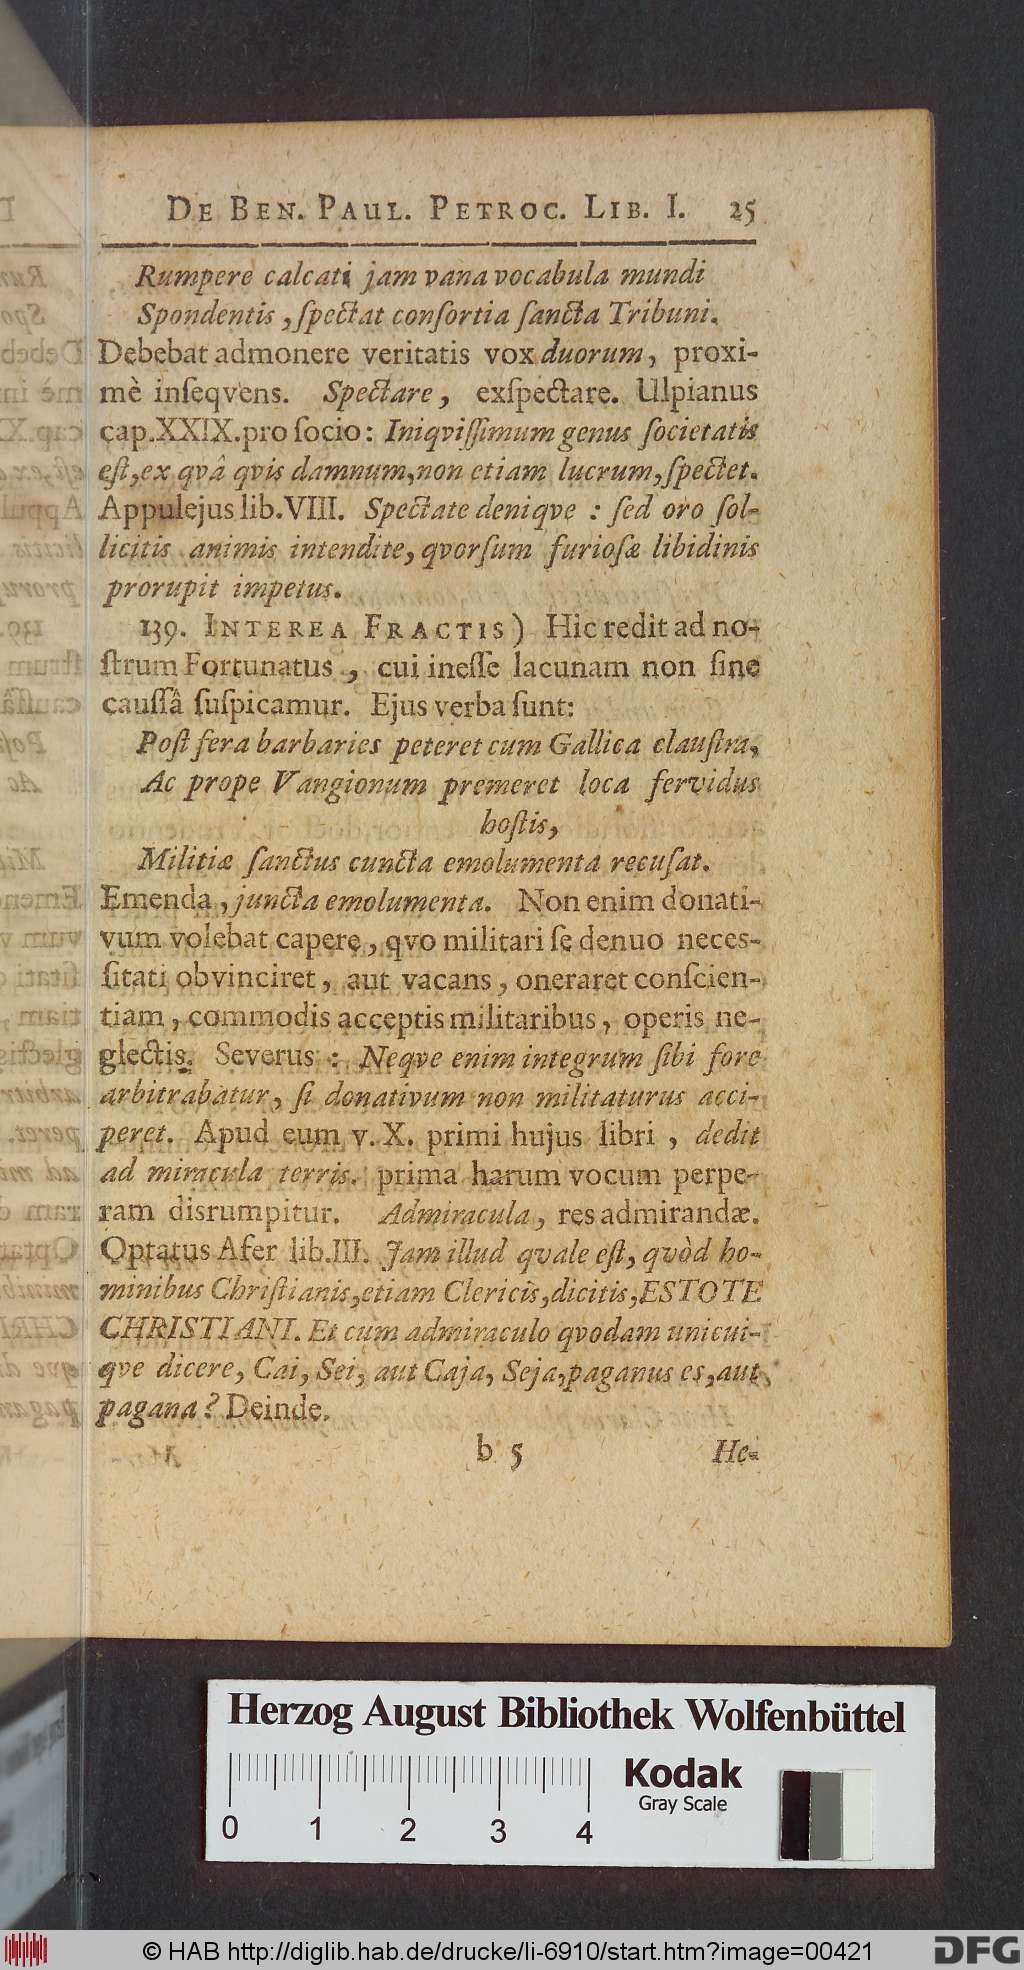 De Ben. Paul. Petroc. Lib. I. 25
Rumpere calcati jam vana vocabula mundi
Spondentis, ſpectat conſortia ſancta Tribuni.
Debebat admonere veritatis vox duorum, proxi-
mè inſeqvens. Spectare, exſpectare. Ulpianus
cap.XXIX.pro ſocio: Iniqviſſimum genus ſocietatis
eſt, ex qvâ qvis damnum, non etiam lucrum, ſpectet.
Appulejus lib.VIII. Spectate deniqve : ſed oro ſol-
licitis animis intendite, qvorſum furioſæ libidinis
prorupit impetus.
139. Interea Fractis) Hic redit ad no-
ſtrum Fortunatus, cui ineſſe lacunam non ſine
cauſſâ ſuſpicamur. Ejus verba ſunt:
Poſt fera barbaries peteret cum Gallica clauſtra,
Ac prope Vangionum premeret loca fervidus
hoſtis,
Militiæ ſanctus cuncta emolumenta recuſat.
Emenda, juncta emolumenta. Non enim donati-
vum volebat capere, qvo militari ſe denuo neces-
ſitati obvinciret, aut vacans, oneraret conſcien-
tiam, commodis acceptis militaribus, operis ne-
glectis. Severus : Neqve enim integrum ſibi fore
arbitrabatur, ſi donativum non militaturus acci-
peret. Apud eum v. X. primi hujus libri, dedit
ad miracula terris. prima harum vocum perpe-
ram disrumpitur. Admiracula, res admirandæ.
Optatus Afer lib.III. Jam illud qvale eſt, qvòd ho-
minibus Chriſtianis, etiam Clericis, dicitis, ESTOTE
CHRISTIANI. Et cum admiraculo qvodam unicui-
qve dicere, Cai, Sei, aut Caja, Seja, paganus es, aut
pagana? Deinde.
b 5 He-
Herzog August Bibliothek Wolfenbüttel
Kodak
Gray Scale
0 1 2 3 4
© HAB http://diglib.hab.de/drucke/li-6910/start.htm?image=00421
DFG